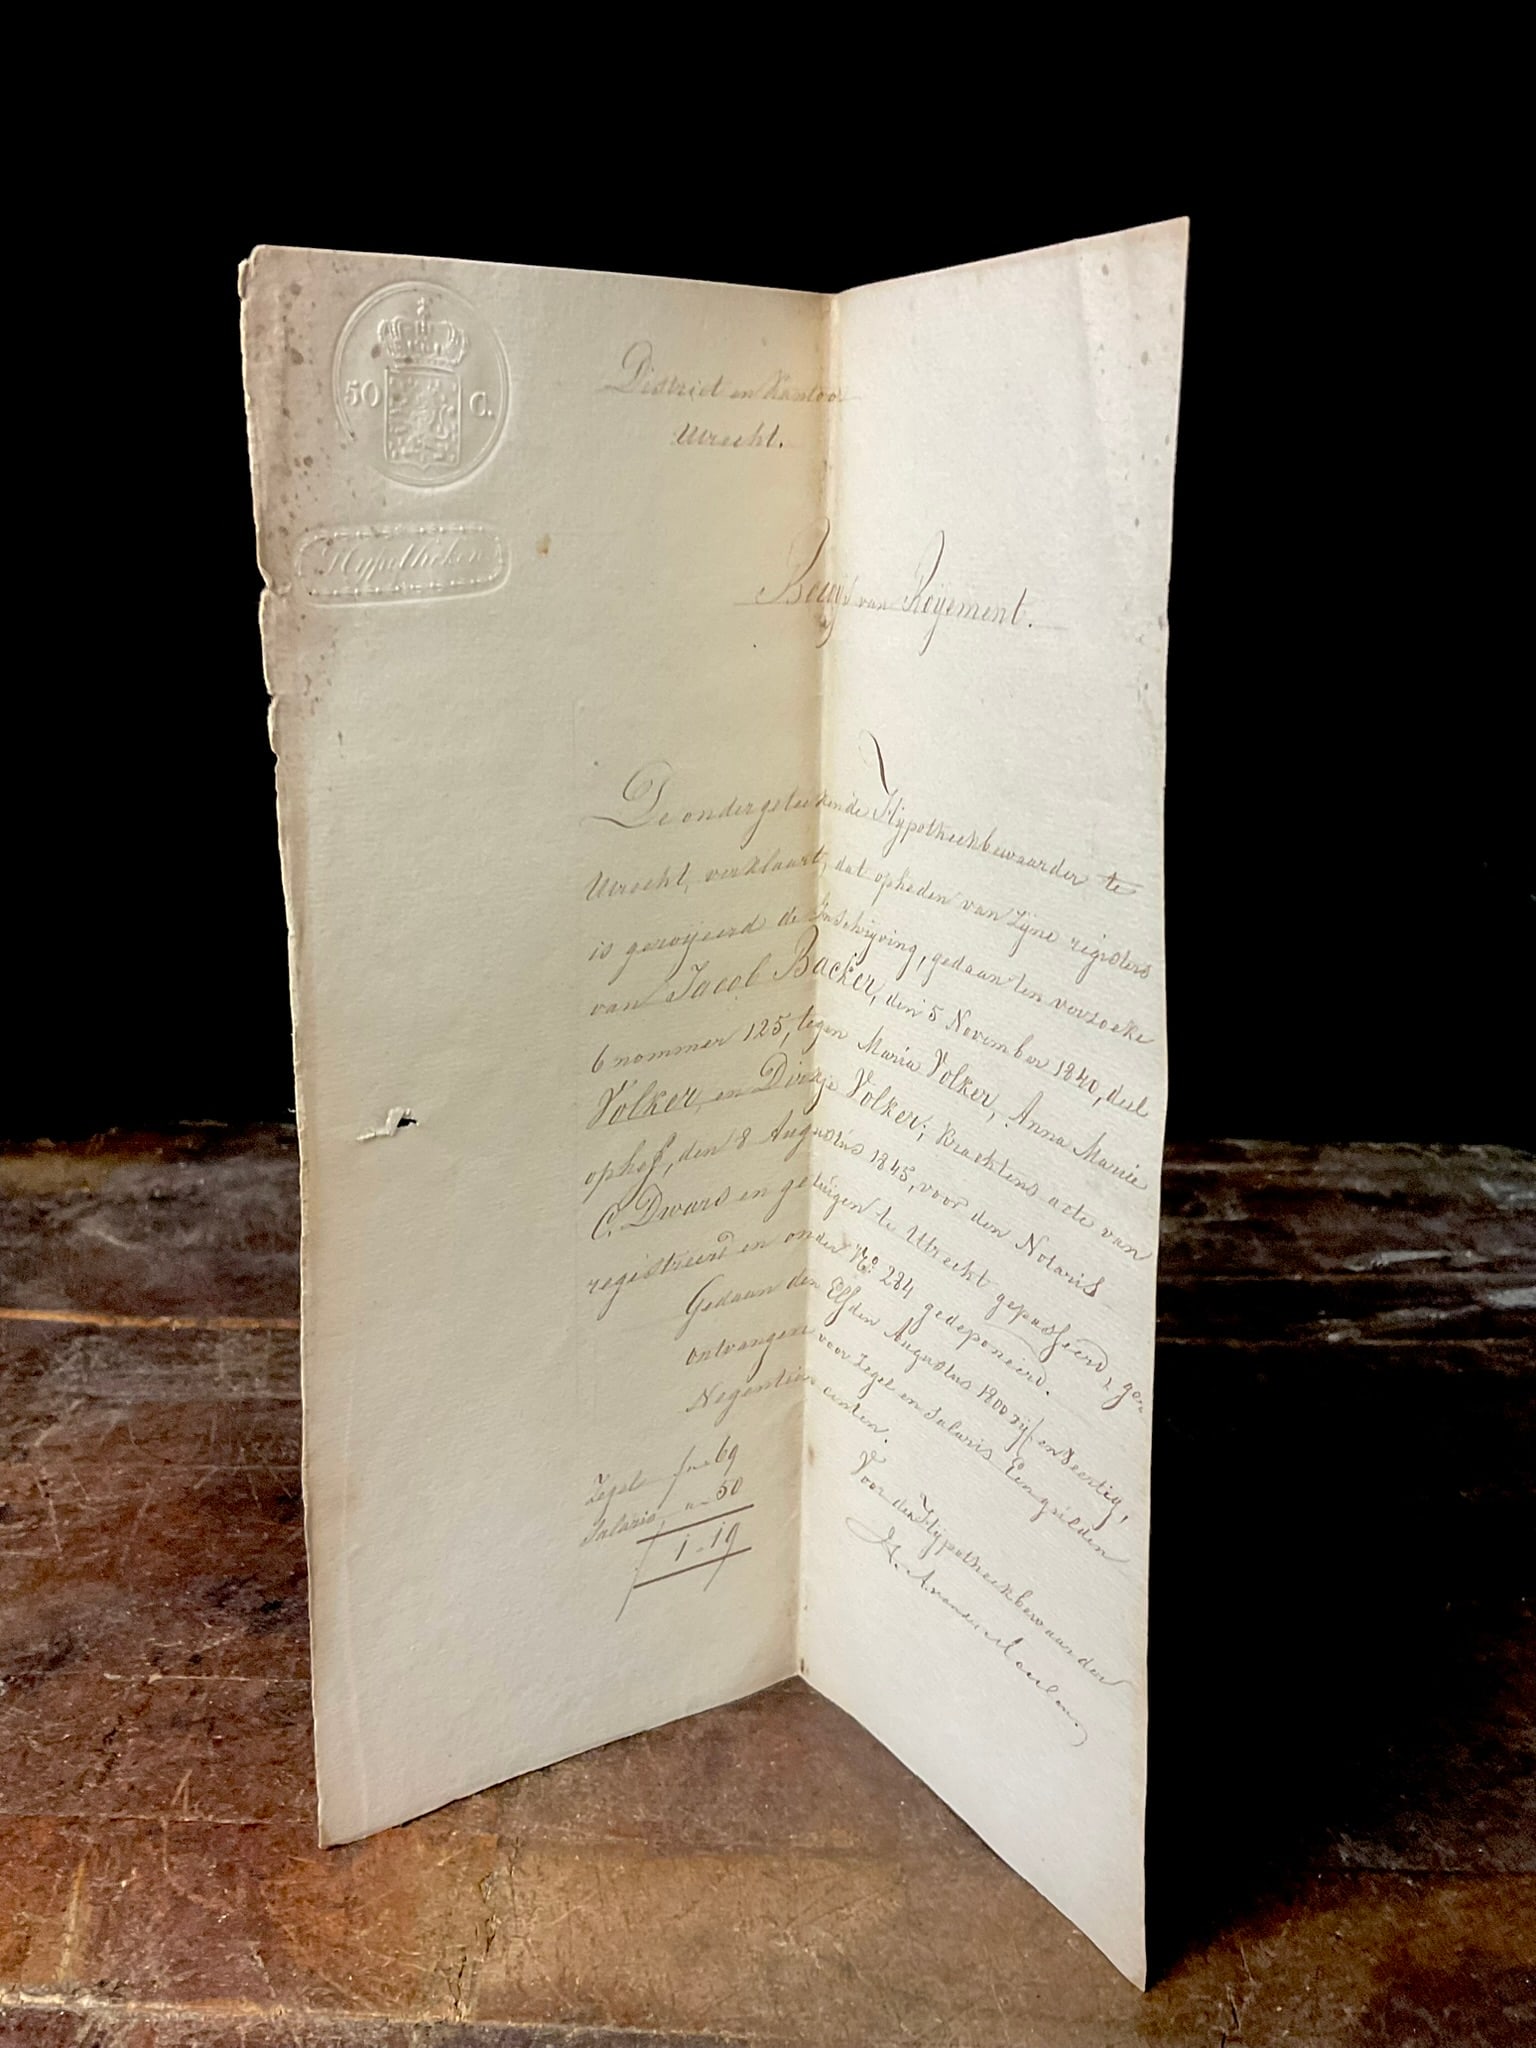 50 C.
Hypotheken
District en Kantoor
Utrecht.
Bewijs van Roijement.
De ondergeteekende Hypotheekbewaarder te
Utrecht, verklaart, dat opheden van zijne registers
is geroijeerd de Inschrijving, gedaan ten verzoeke
van Jacob Backer, den 5 November 1840, deel
6 nommer 125, tegen Maria Volker, Anna Maria
Volker, en Dirkje Volker; Krachtens acte van
ophef, den 8 Augustus 1845, voor den Notaris
C. Dwars en getuigen te Utrecht gepasseerd, ge-
registreerd en onder No. 284 gedeponeerd.
Gedaan den Elfden Augustus 1800 vijf en veertig,
ontvangen voor Zegel en Salaris Een gulden
Negentien centen.
Zegel f " - 69
Salaris " - 50
f 1 - 19
Voor den Hypotheekbewaarder